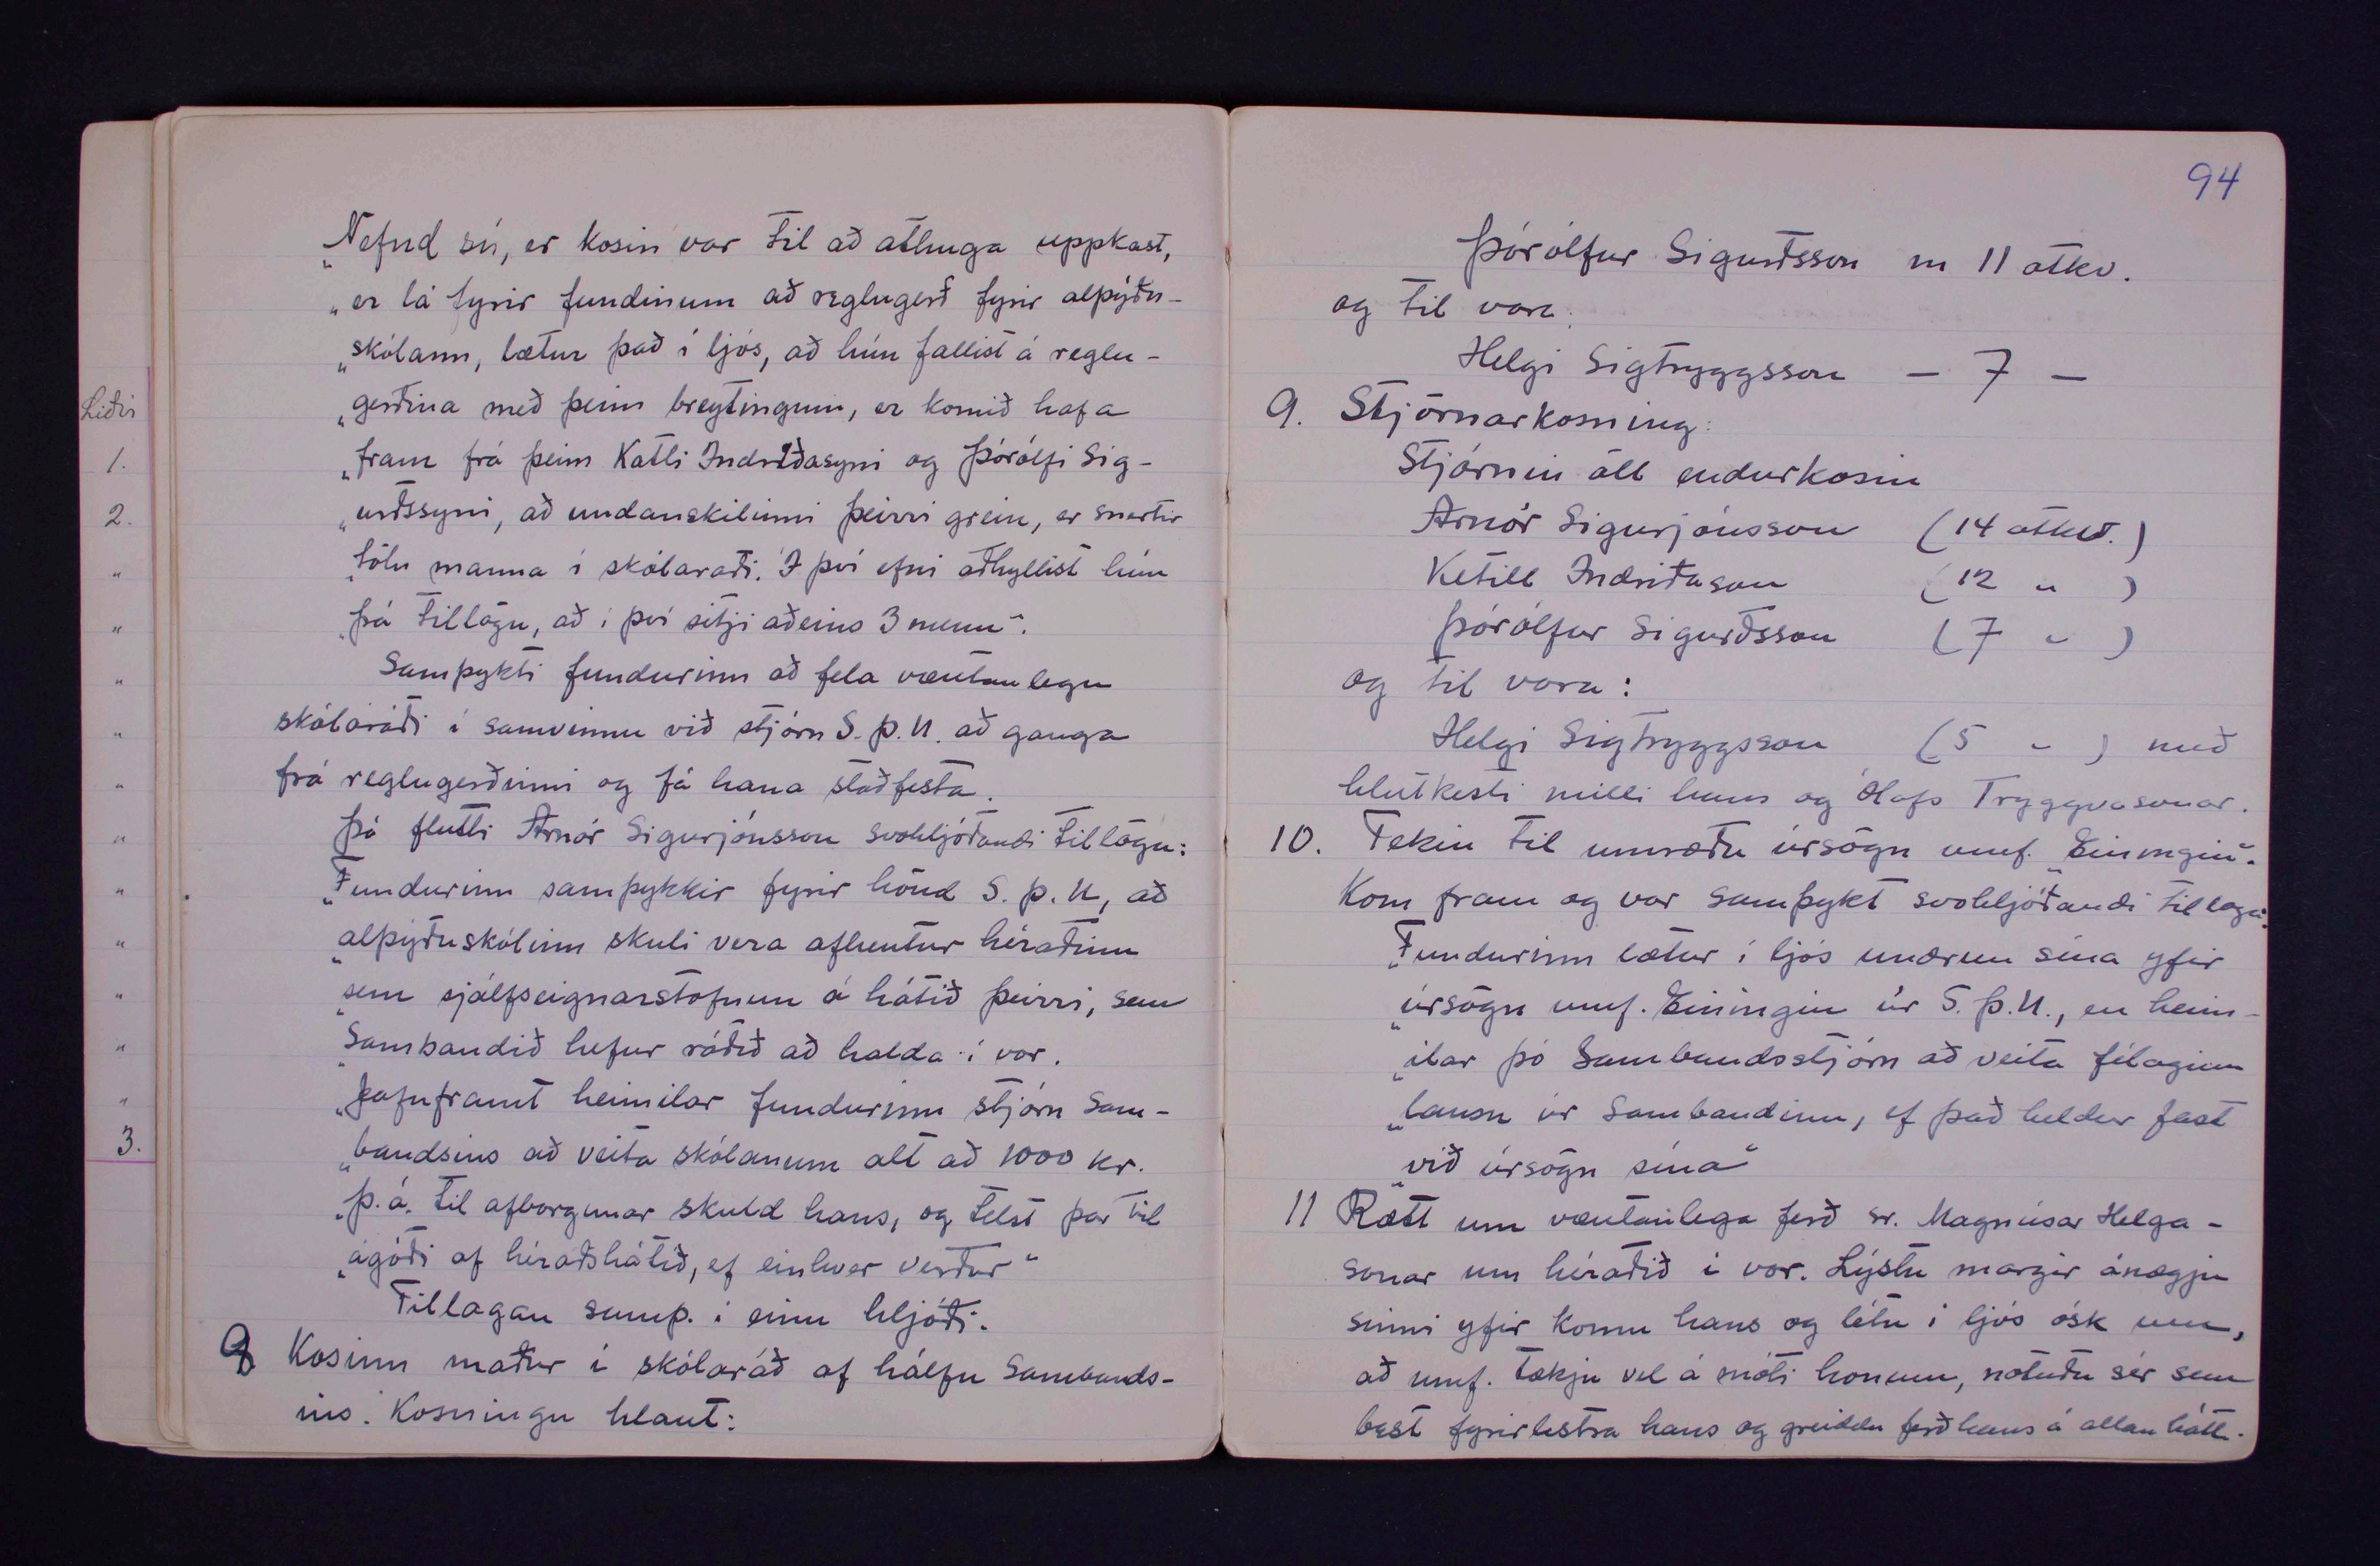 Liðir
1.
2.
"
"
"
"
"
"
"
"
"
"
"
3.
„Nefnd sú, er kosin var til að athuga uppkast,
„er lá fyrir fundinum að reglugerð fyrir alþýðu-
„skólann, lætur það í ljós, að hún fallist á reglu-
„gerðina með þeim breytingum, er komið hafa
„fram frá þeim Katli Indriðasyni og Þórólfi Sig-
„urðssyni, að undanskilinni þeirri grein, er snertir
„tölu manna í skólaráði. Í því efni aðhyllist hún
„þá tillögu, að í því sitji aðeins 3 menn“.
Samþykti fundurinn að fela væntanlegu
skólaráði í samvinnu við stjórn S.Þ.U. að ganga
frá reglugerðinni og fá hana staðfesta.
Þá flutti Arnór Sigurjónsson svohljóðandi tillögu:
„Fundurinn samþykkir fyrir hönd S.Þ.U, að
„alþýðuskólinn skuli vera afhentur héraðinu
„sem sjálfseignarstofnun á hátíð þeirri, sem
„Sambandið hefur ráðið að halda í vor.
„Jafnframt heimilar fundurinn stjórn Sam-
„bandsins að veita skólanum alt að 1000 kr.
„þ.á. til afborgunar skuld hans, og telst þar til
„ágóði af héraðshátíð, ef einhver verður“
Tillagan samþ. í einu hljóði.
8 Kosinn maður í skólaráð af hálfu Sambands-
ins. Kosningu hlaut:
94
Þórólfur Sigurðsson m 11 atkv.
og til vara:
Helgi Sigtryggsson — 7 —
9. Stjórnarkosning:
Stjórnin öll endurkosin
Arnór Sigurjónsson (14 atkv.)
Ketill Indriðason (12 " )
Þórólfur Sigurðsson (7 " )
og til vara:
Helgi Sigtryggsson (5 " ) með
hlutkesti milli hans og Ólafs Tryggvasonar.
10. Tekin til umræðu úrsögn umf. „Einingin“.
Kom fram og var samþykt svohljóðandi tillaga:
„Fundurinn lætur í ljós undrun sína yfir
„úrsögn umf. Einingin úr S.Þ.U., en heim-
„ilar þó Sambandsstjórn að veita félaginu
„lausn úr Sambandinu, ef það heldur fast
„við úrsögn sína“
11 Rætt um væntanlega ferð sr. Magnúsar Helga-
sonar um héraðið í vor. Lýstu margir ánægju
sinni yfir komu hans og létu í ljós ósk um,
að umf. tækju vel á móti honum, notuðu sér sem
best fyrirlestra hans og greiddu ferð hans á allan hátt.